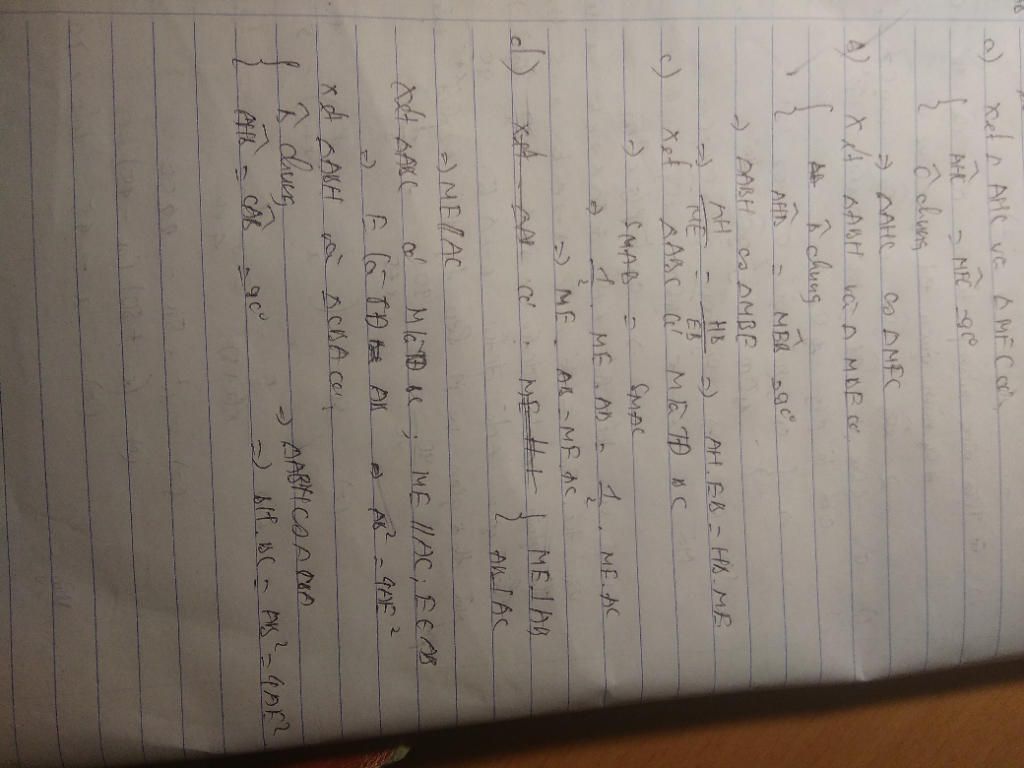 a) xét △ AHC và △ MFC có
{ AHC = MFC = 90°
C chung
⇒ △AHC ∽ △MFC
b) xét △ABH và △ MBE có
{ B chung
AHB = MEB = 90°
⇒ △ABH ∽ △MBE
⇒ AH/ME = HB/EB ⇒ AH.EB = HB.ME
c) xét △ABC có M là TĐ BC
⇒ SMAB = SMAC
⇒ 1/2 . ME . AB = 1/2 . MF. AC
⇒ ME . AB = MF. AC
d) xét có { ME⊥AB
AB⊥AC
⇒ ME//AC
xét △ABC có M là TĐ BC ; ME//AC ; E ∈ AB
⇒ E là TĐ AB ⇒ AB² = 4AE²
xét △ABH và △CBA có
{ B chung ⇒ △ABH ∽ △CBA
AHB = CAB = 90° ⇒ BH.BC = AB² = 4AE²